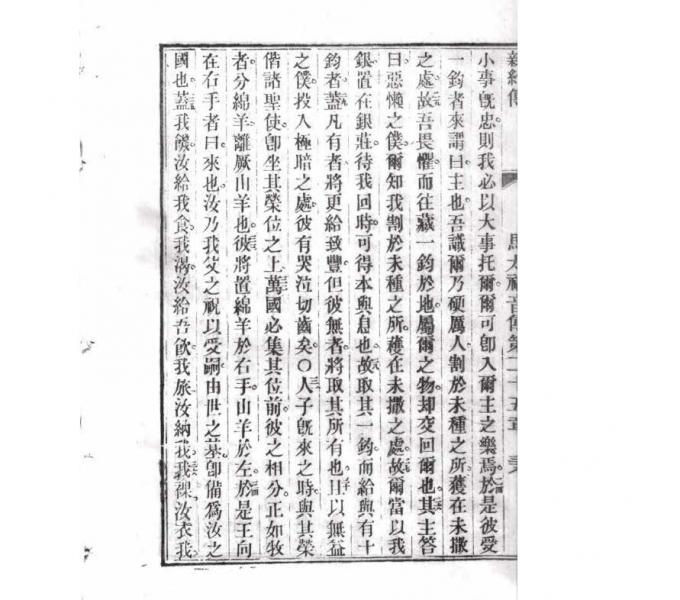 馬太福音傳第二十五章
小事旣忠則我必以大事托爾爾可卽入爾主之樂焉於是彼受
一鈞者來謂曰主也吾識爾乃硬厲人割於未種之所穫在未撒
之處故吾畏懼而往藏一鈞於地屬爾之物却交回爾也其主答
曰惡懶之僕爾知我割於未種之所穫在未撒之處故爾當以我
銀置在銀莊待我回時可得本與息也故取其一鈞而給與有十
鈞者蓋凡有者將更給致豐但彼無者將取其所有也且以無益
之僕投入極暗之處彼有哭泣切齒矣〇人子旣來之時與其榮
偕諸聖使卽坐其榮位之上萬國必集其位前彼之相分正如牧
者分綿羊離厥山羊也彼將置綿羊於右手山羊於左於是王向
在右手者曰來也汝乃我父之祝以受嗣由世之基卽備爲汝之
國也蓋我饑汝給我食我渴汝給吾飮我旅汝納我我裸汝衣我